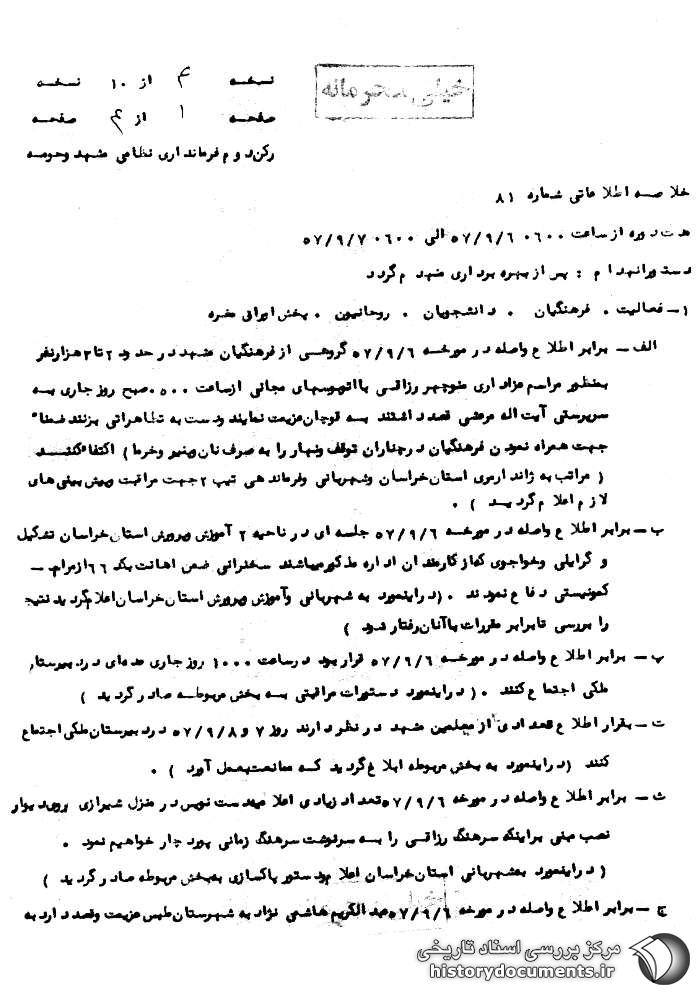 خیلی محرمانه
نسخه ۴ از ۱۰ نسخه
صفحه ۱ از ۴ صفحه
رکن دوم فرمانداری نظامی مشهد وحومه
خلاصه اطلاعاتی شماره ۸۱
مدت دوره از ساعت ۰۶۰۰ ۵۷/۹/۶ الی ۰۶۰۰ ۵۷/۹/۷
دستور انهدام : پس از بهره برداری منهدم گردد
۱ــ فعالیت . فرهنگیان . دانشجویان . روحانیون . پخش اوراق مضره
الف ــ برابر اطلاع واصله در مورخه ۵۷/۹/۶ گروهی از فرهنگیان مشهد در حدود ۲ تا ۳ هزار نفر
بمنظور مراسم عزاداری منوچهر رزاقی با اتوبوسهای مجانی از ساعت ۰۵۰۰ صبح روز جاری به
سرپرستی آیت اله مرعشی قصد داشتند به قوچان عزیمت نمایند ودست به تظاهراتی بزنند ضمناً
جهت همراه نمودن فرهنگیان در چناران توقف ونهار را به صرف نان وپنیر وخرما ) اکتفا کنند
( مراتب به ژاندارمری استان خراسان وشهربانی وفرماندهی تیپ ۲ جهت مراقبت وپیش بینی های
لازم اعلام گردید ) .
ب ــ برابر اطلاع واصله در مورخه ۵۷/۹/۶ جلسه ای در ناحیه ۲ آموزش وپرورش استان خراسان تشکیل
و گرایلی وخواجوی که از کارمندان اداره مذکور میباشند سخنرانی ضمن اهانت بکد ۶۶ از مرام ــ
کمونیستی دفاع نمودند . (در اینمورد به شهربانی وآموزش وپرورش استان خراسان اعلام گردید نتیجه
را بررسی تا برابر مقررات با آنان رفتار شود )
پ ــ برابر اطلاع واصله در مورخه ۵۷/۹/۶ قرار بود در ساعت ۱۰۰۰ روز جاری عده ای در دبیرستان
ملکی اجتماع کنند . ( در اینمورد دستورات مراقبتی به بخش مربوطه صادر گردید )
ت ــ بقرار اطلاع تعدادی از معلمین مشهد در نظر دارند روز ۷ و ۵۷/۹/۸ در دبیرستان ملکی اجتماع
کنند (در اینمورد به بخش مربوطه ابلاغ گردید که ممانعت بعمل آورد ) .
ث ــ برابر اطلاع واصله در مورخه ۵۷/۹/۶ تعداد زیادی اعلامیه دست نویس در منزل شیرازی بروی دیوار
نصب مبنی بر اینکه سرهنگ رزاقی را به سرنوشت سرهنگ زمانی پور دچار خواهیم نمود .
( در اینمورد به شهربانی استان خراسان اعلام ودستور پاکسازی به بخش مربوطه صادر گردید )
ج ــ برابر اطلاع واصله در مورخه ۵۷/۹/۶ عبدالکریم هاشمی نژاد به شهرستان طبس عزیمت وقصد دارد به
مرکز بررسی اسناد تاریخی
historydocuments.ir